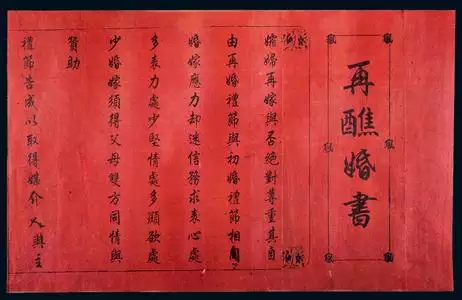 再醮婚書
孀婦再嫁與否絕對尊重其自
由再婚禮節與初婚禮節相
婚嫁應力却迷信務求心處
多力處少堅情處多欲處
少婚嫁須得父母雙方同情與
贊助
禮節告成以取得媒介人與主